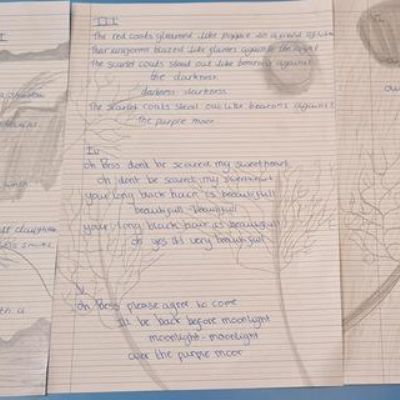 I
III
The red coats gleamed like poppies in a field of
Their uniforms blazed like flames against the night
The scarlet coats stood out like beacons against
the darkness
darkness - darkness
The scarlet coats stood out like beacons against
the purple moor
IV
Oh Bess dont be scared my sweetheart
oh dont be scared my sweetheart
your long black hair is beautifull
beautifull - beautifull
your long black hair is beautifull
oh yes its very beautifull
V
Oh Bess please agree to come
Ill be back before moonlight
moonlight - moonlight
over the purple moor
daughter